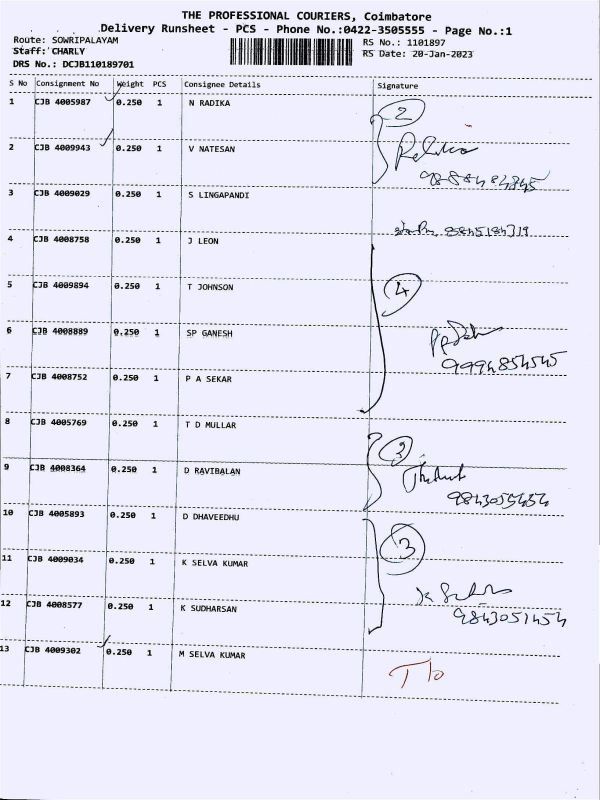 THE PROFESSIONAL COURIERS, Coimbatore
Delivery Runsheet - PCS - Phone No.:0422-3505555 - Page No.:1
Route: SOWRIPALAYAM
RS No.: 1101897
Staff: CHARLY
RS Date: 20-Jan-2023
DRS No.: DCJB110189701
S No Consignment No Weight PCS Consignee Details Signature
1 CJB 4005987 0.250 1 N RADIKA
2
2 CJB 4009943 0.250 1 V NATESAN
3 CJB 4009029 0.250 1 S LINGAPANDI
4 CJB 4008758 0.250 1 J LEON
5 CJB 4009894 0.250 1 T JOHNSON
4
6 CJB 4008889 0.250 1 SP GANESH
9994854545
7 CJB 4008752 0.250 1 P A SEKAR
8 CJB 4005769 0.250 1 T D MULLAR
3
9 CJB 4008364 0.250 1 D RAVIBALAN
10 CJB 4005893 0.250 1 D DHAVEEDHU
3
11 CJB 4009034 0.250 1 K SELVA KUMAR
12 CJB 4008577 0.250 1 K SUDHARSAN
9843051454
13 CJB 4009302 0.250 1 M SELVA KUMAR